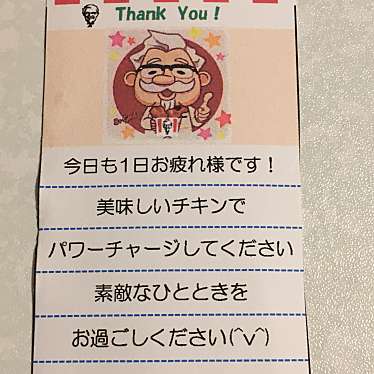 Thank You!
今日も1日お疲れ様です！
美味しいチキンで
パワーチャージしてください
素敵なひとときを
お過ごしください(^v^)